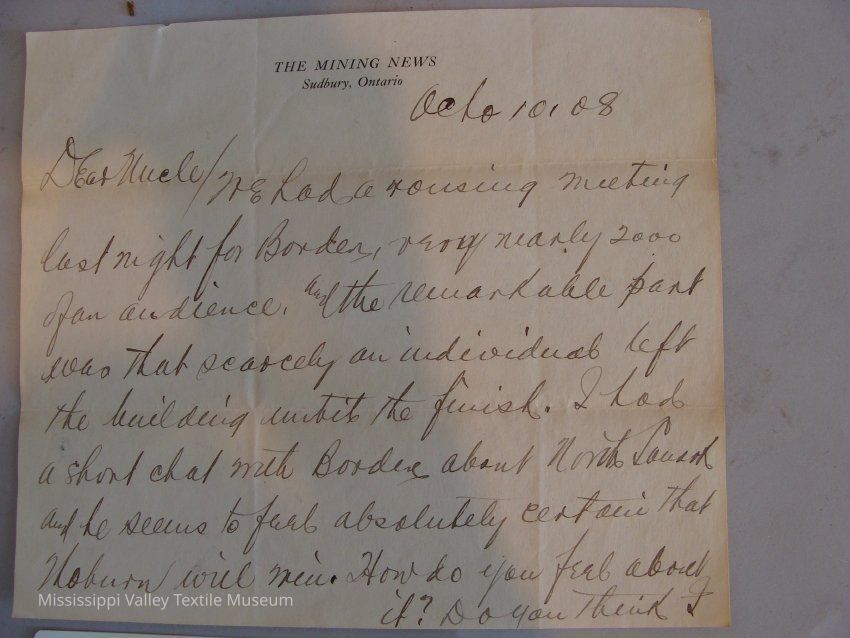 THE MINING NEWS
Sudbury, Ontario
Octo 10, 08
Dear Uncle/ We had a rousing meeting
last night for Borden, very nearly 2000
of an audience. and the remarkable part
was that scarcely an individual left
the building until the finish. I had
a short chat with Borden about North Lanark
and he seems to feel absolutely certain that
Thoburn will win. How do you feel about
it? Do you think I
Mississippi Valley Textile Museum